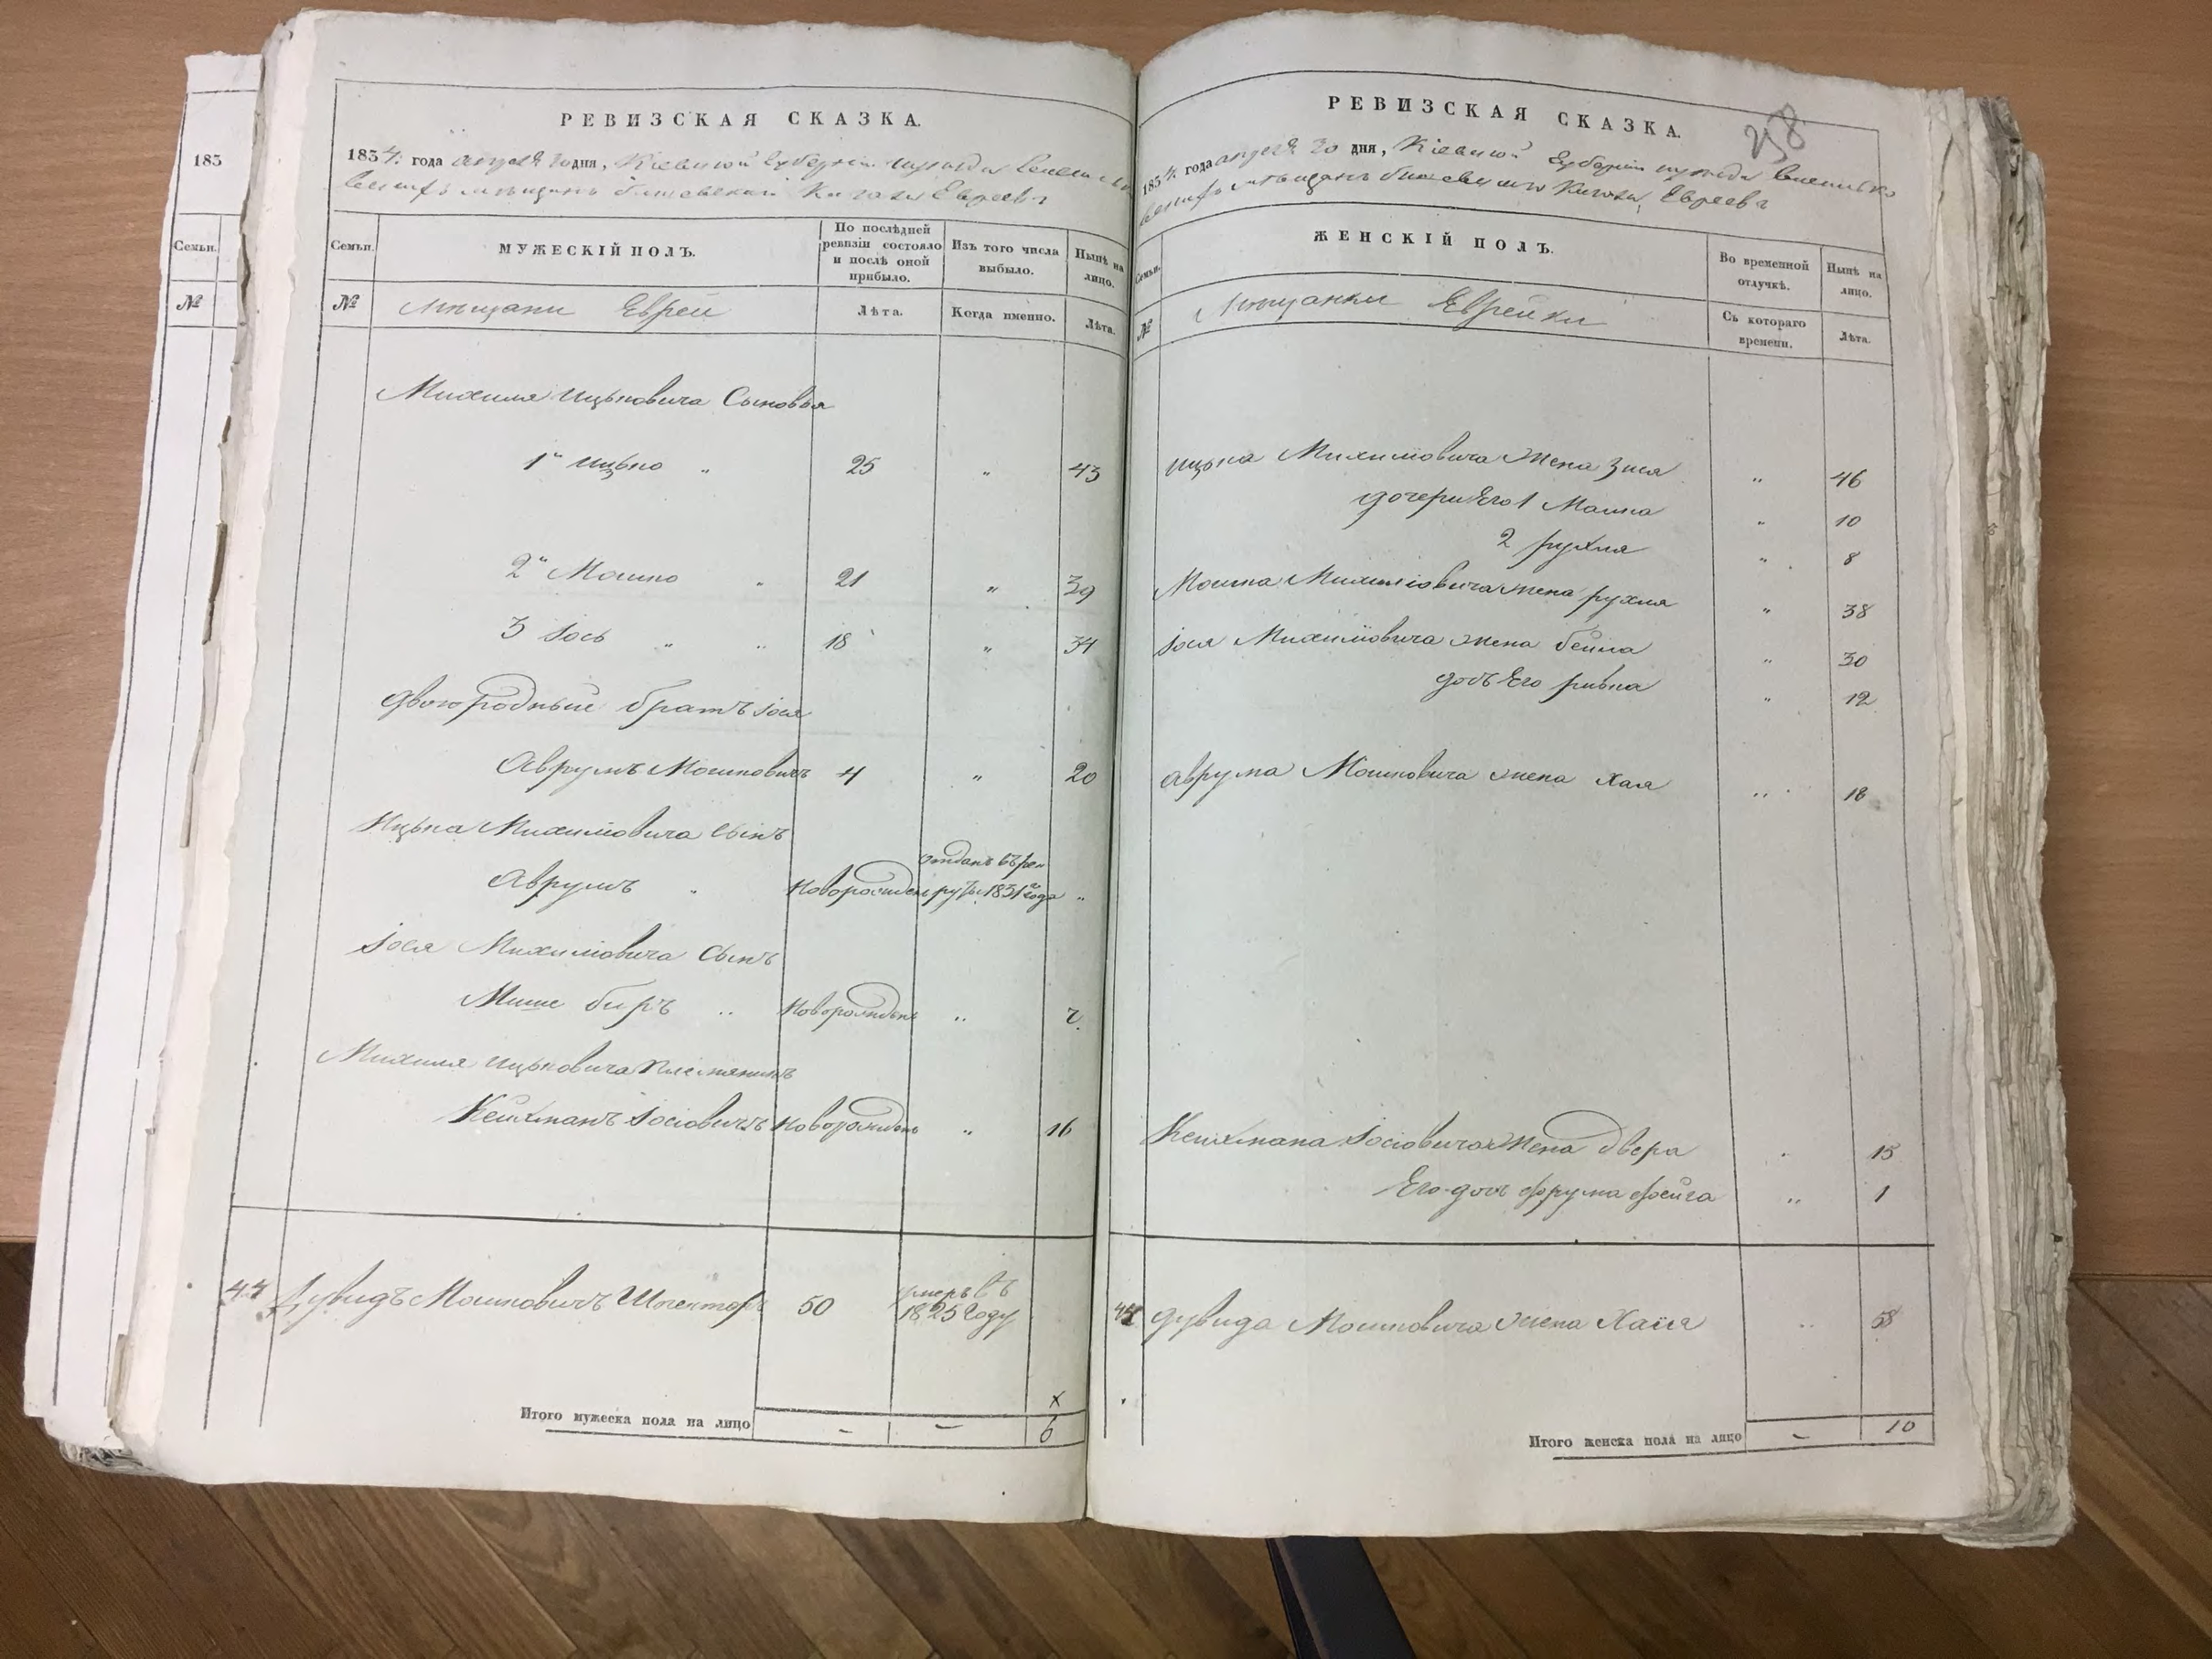 183
Семьи.
№
РЕВИЗСКАЯ СКАЗКА.
1834 года апреля 30 дня, Кіевской Губерніи
мѣщанъ Кагала Евреевъ
Семьи.
МУЖЕСКІЙ ПОЛЪ.
По послѣдней ревизіи состояло и послѣ оной прибыло.
Изъ того числа выбыло.
Нынѣ на лицо.
№
Мѣщани Евреи
Лѣта.
Когда именно.
Лѣта.
Михиля Ицьковича Сыновья
1й Ицько " 25 " 43
2й Мошко " 21 " 39
3 Iось " " 18 " 34
двоюродный братъ Iося
Аврумъ Мошковичъ 4 " 20
Ицька Михиліовича сынъ
отданъ въ рек
Аврумъ " Новорожденъ руты 1831 года "
Iося Михиліовича Сынъ
Берь " Новорожденъ "
Михиля Ицьковича племянникъ
Iосіовичъ Новорожденъ " 16
44 Дувидъ Мошковичъ 50 умеръ въ
1825 Году
х
Итого мужеска пола на лицо - - 6
РЕВИЗСКАЯ СКАЗКА.
1834 года апреля 30 дня, Кіевской Губерніи
мѣщанъ Кагала Евреевъ
Семьи.
ЖЕНСКІЙ ПОЛЪ.
Во временной отлучкѣ.
Нынѣ на лицо.
№
Мѣщанки Еврейки
Съ котораго времени.
Лѣта.
Ицька Михиліовича жена Зися " 46
дочери Его 1 Малка " 10
2 рухля " 8
Мошка Михиліовича жена рухля " 38
Iося Михиліовича жена бейла " 30
дочь Его ривка " 12
Аврума Мошковича жена Хая " 18
Iосіовича жена двера " 15
Его дочь Фрума Фейга " 1
44 Дувида Мошковича жена Хаія " 58
Итого женска пола на лицо - 10